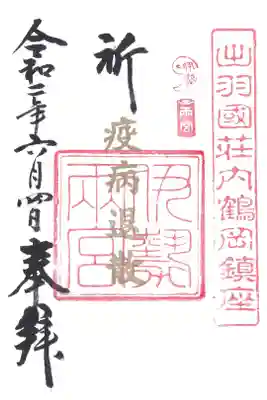 出羽國荘内鶴岡鎮座
両宮
祈
疫病退散
伊勢両宮
令和二年六月四日
奉拝